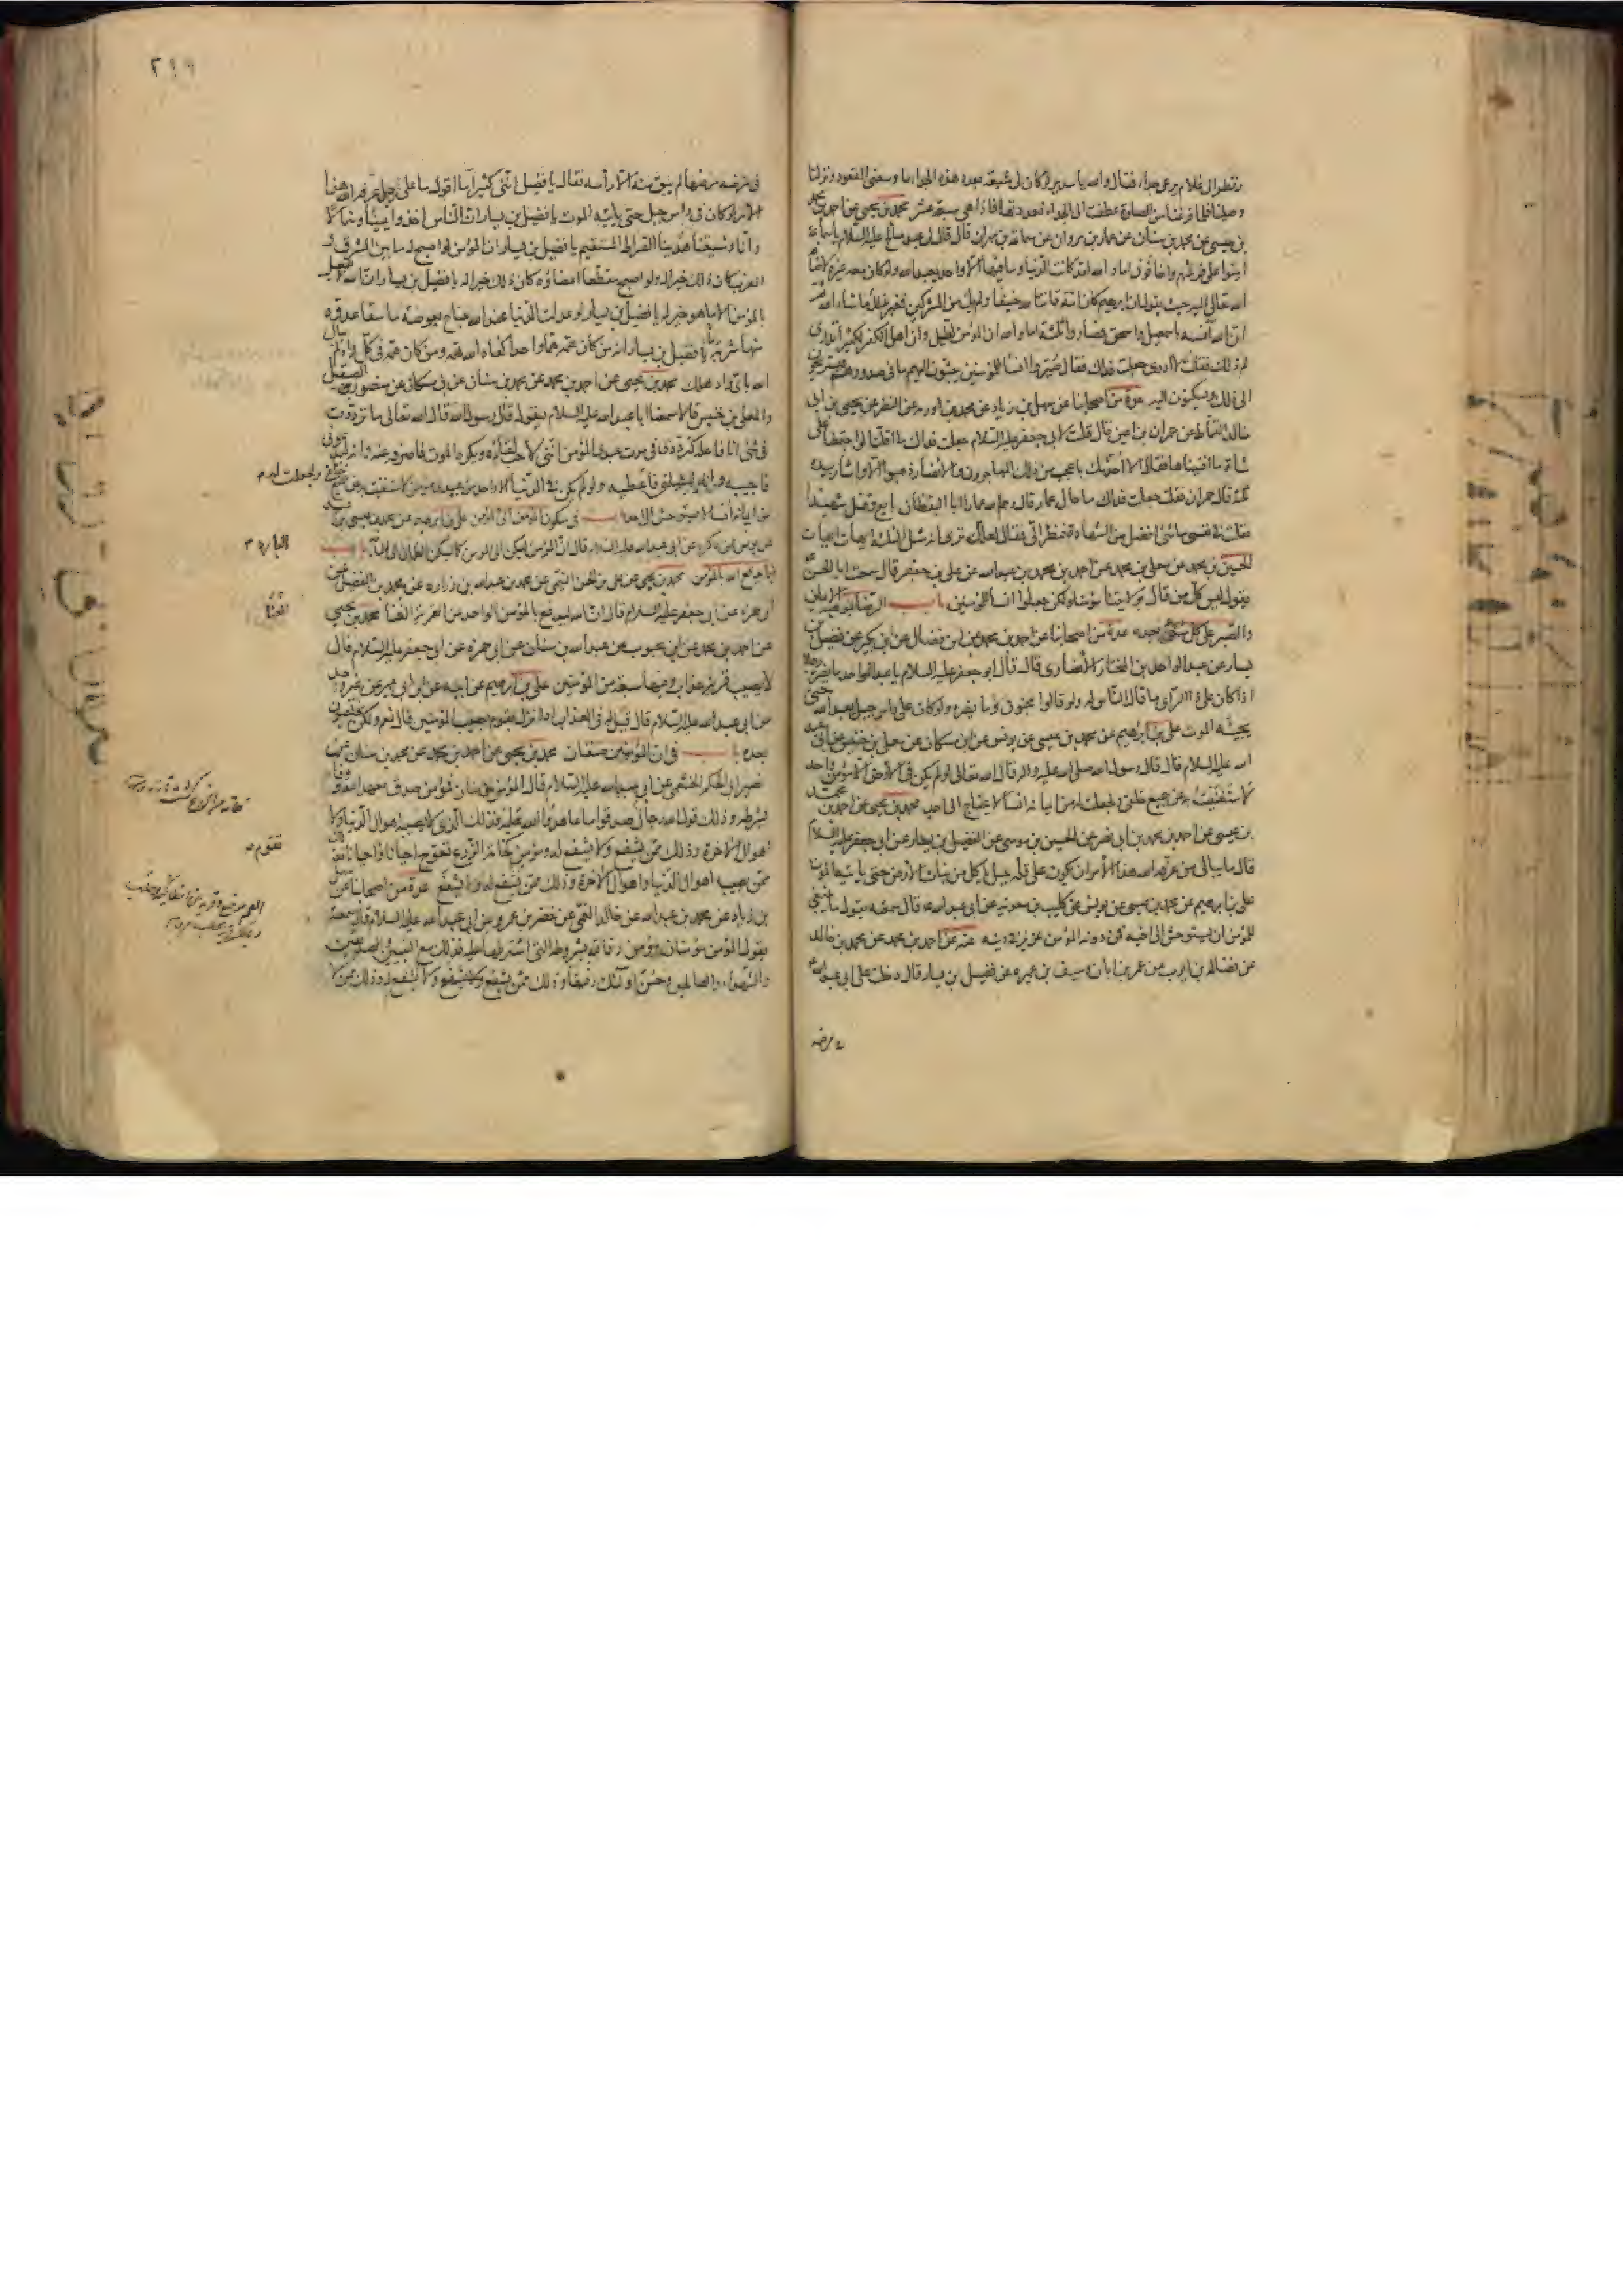 ونظر الى غلام يرعى جداء فقال والله يا سدير لو كان لى شيعة بعدد هذه الجداء ما وسعنى القعود ونزلنا
وصلينا فلما فرغنا من الصلوة عطفت الى الجداء فعددتها فاذا هى سبعة عشر محمد بن يحيى عن احمد بن محمد
بن عيسى عن محمد بن سنان عن عمار بن مروان عن سماعة بن مهران قال قال لى عبد صالح عليه السلام يا سماعة
امنوا على فرشهم واخافونى اما والله لقد كانت الدنيا وما فيها الا واحد يعبد الله ولو كان معه غيره لاضافه
الله تعالى اليه حيث يقول ان ابرهيم كان امة قانتا لله حنيفا ولم يك من المشركين فغبر بذلك ما شاء الله ثم
ان الله آنسه باسمعيل واسحق فصاروا ثلثة اما والله ان المؤمن لقليل وان اهل الكفر لكثير أتدرى
لم ذلك فقلت لا ادرى جعلت فداك فقال صيروا انسا للمؤمنين يبثون اليهم ما فى صدورهم فيستريحون
الى ذلك ويسكنون اليه عدة من اصحابنا عن سهل بن زياد عن محمد بن اورمه عن النضر عن يحيى بن ابى
خالد القماط عن حمران بن اعين قال قلت لابى جعفر عليه السلام جعلت فداك ما اقلنا لو اجتمعنا على
شاة ما افنيناها فقال الا احدثك باعجب من ذلك المهاجرون والانصار ذهبوا الا واشار بيده
ثلثة قال حمران فقلت جعلت فداك ما حال عمار قال رحم الله عمارا ابا اليقظان بايع وقتل شهيدا
فقلت فى نفسى ما شئ افضل من الشهادة فنظر الى فقال لعلك ترى انه مثل الثلثة ايهات ايهات
الحسين بن محمد عن معلى بن محمد عن احمد بن محمد بن عبد الله عن على بن جعفر قال سمعت ابا الحسن
يقول ليس كل من قال بولايتنا مؤمنا ولكن جعلوا انسا للمؤمنين باب الرضا بموهبة الايمان
والصبر على كل شئ بعده عدة من اصحابنا عن احمد بن محمد عن ابن فضال عن ابن بكير عن فضيل بن
يسار عن عبد الواحد بن المختار الانصارى قال قال ابو جعفر عليه السلام يا عبد الواحد ما يضر رجلا
اذا كان على ذا الراى ما قال الناس له ولو قالوا مجنون وما يضره ولو كان على راس جبل يعبد الله حتى
يجيئه الموت على بن ابرهيم عن محمد بن عيسى عن يونس عن ابن مسكان عن معلى بن خنيس عن ابى عبد
الله عليه السلام قال قال رسول الله صلى الله عليه واله قال الله تعالى لو لم يكن فى الارض الا مؤمن واحد
لاستغنيت به عن جميع خلقى ولجعلت له من ايمانه انسا لا يحتاج الى احد محمد بن يحيى عن احمد بن محمد
بن عيسى عن احمد بن محمد بن ابى نصر عن الحسين بن موسى عن الفضيل بن يسار عن ابى جعفر عليه السلام
قال ما يبالى من عرفه الله هذا الامر ان يكون على قلة جبل ياكل من نبات الارض حتى ياتيه الموت
على بن ابرهيم عن محمد بن عيسى عن يونس عن كليب بن معوية عن ابى عبد الله قال سمعته يقول ما ينبغى
للمؤمن ان يستوحش الى اخيه فمن دونه المؤمن عزيز فى دينه عنه عن احمد بن محمد عن محمد بن خالد
عن فضالة بن ايوب عن عمر بن ابان وسيف بن عميره عن فضيل بن يسار قال دخلت على ابى عبد الله
فى مرضه
٢١٩
فى مرضه مرضها لم يبق منه الا راسه فقال يا فضيل اننى كثيرا ما اقول ما على رجل عرفه الله هذا
الامر لو كان فى راس جبل حتى ياتيه الموت يا فضيل بن يسار ان الناس اخذوا يمينا وشمالا
وانا وشيعتنا هدينا الصراط المستقيم يا فضيل بن يسار ان المؤمن لو اصبح له ما بين المشرق و
المغرب كان ذلك خيرا له ولو اصبح مقطعا اعضاؤه كان ذلك خيرا له يا فضيل بن يسار ان الله لا يفعل
بالمؤمن الا ما هو خير له يا فضيل بن يسار لو عدلت الدنيا عند الله جناح بعوضة ما سقا عدوه
منها شربة يا فضيل بن يسار انه من كان همه هما واحدا كفاه الله همه ومن كان همه فى كل واد لم يبال
الله باى واد هلك محمد بن يحيى عن احمد بن محمد عن محمد بن سنان عن ابن مسكان عن منصور الصيقل
والمعلى بن خنيس قالا سمعنا ابا عبد الله عليه السلام يقول قال رسول الله قال الله تعالى ما ترددت
فى شئ انا فاعله كترددى فى موت عبدى المؤمن اننى لاحب لقاءه ويكره الموت فاصرفه عنه وانه ليدعونى
فاجيبه وانه ليسئلنى فاعطيه ولو لم يكن فى الدنيا الا واحد من عبيدى مؤمن لاستغنيت به عن جميع خلقى ولجعلت له
من ايمانه انسا لا يستوحش الى احد باب فى سكون المؤمن الى المؤمن على بن ابرهيم عن محمد بن عيسى بن عبيد
عن يونس عمن ذكره عن ابى عبد الله عليه السلام قال ان المؤمن ليسكن الى المؤمن كما يسكن الظمآن الى الماء باب
البارد
فيما يدفع الله بالمؤمن محمد بن يحيى عن على بن الحسن التيمى عن محمد بن عبد الله بن زراره عن محمد بن الفضيل عن
ابى حمزة عن ابى جعفر عليه السلام قال ان الله ليدفع بالمؤمن الواحد عن القرية الفنا محمد بن يحيى
الفنا
عن احمد بن محمد عن ابن محبوب عن عبد الله بن سنان عن ابى حمزة عن ابى جعفر عليه السلام قال
لا يصيب قرية عذاب وفيها سبعة من المؤمنين على بن ابرهيم عن ابيه عن ابن ابى عمير عن غير واحد
عن ابى عبد الله عليه السلام قال قيل له فى العذاب اذا نزل بقوم يصيب المؤمنين قال نعم ولكن يخلصون
بعده باب فى ان المؤمنين صنفان محمد بن يحيى عن احمد بن محمد عن محمد بن سنان عن
نصير ابى الحكم الخثعمى عن ابى عبد الله عليه السلام قال المؤمن مؤمنان فمؤمن صدق بعهد الله ووفا
بشرطه وذلك قول الله رجال صدقوا ما عاهدوا الله عليه فذلك الذى لا يصيبه اهوال الدنيا ولا
اهوال الاخرة وذلك ممن يشفع ولا يشفع له ومؤمن كخامة الزرع تعوج احيانا واحيانا
تقوم
ممن يصيبه اهوال الدنيا واهوال الاخرة وذلك ممن يشفع له ولا يشفع عدة من اصحابنا عن سهل
بن زياد عن محمد بن عبد الله عن خالد القمى عن خضر بن عمرو عن ابى عبد الله عليه السلام قال سمعته
يقول المؤمن مؤمنان مؤمن وفا لله بشروطه التى اشترطها عليه فذلك مع النبيين والصديقين
والشهداء والصالحين وحسن اولئك رفيقا وذلك ممن يشفع ولا يشفع له وذلك ممن لا